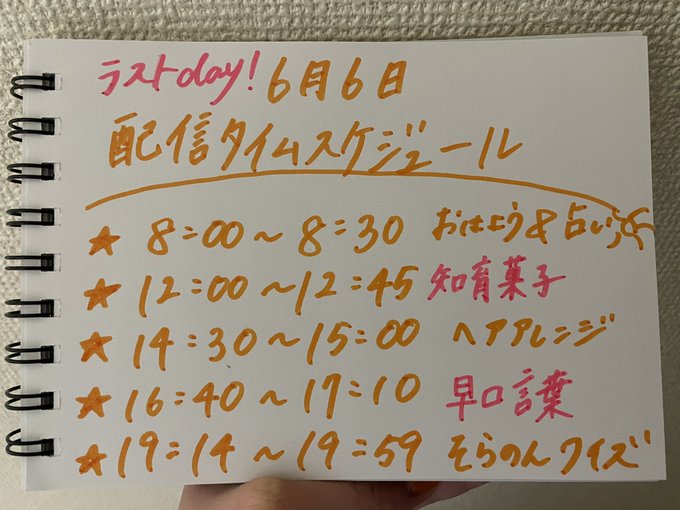 ラストday! 6月6日
配信タイムスケジュール
★ 8:00～8:30 おはよう&占い
★ 12:00～12:45 知育菓子
★ 14:30～15:00 ヘアアレンジ
★ 16:40～17:10 早口言葉
★ 19:14～19:59 そらのんクイズ